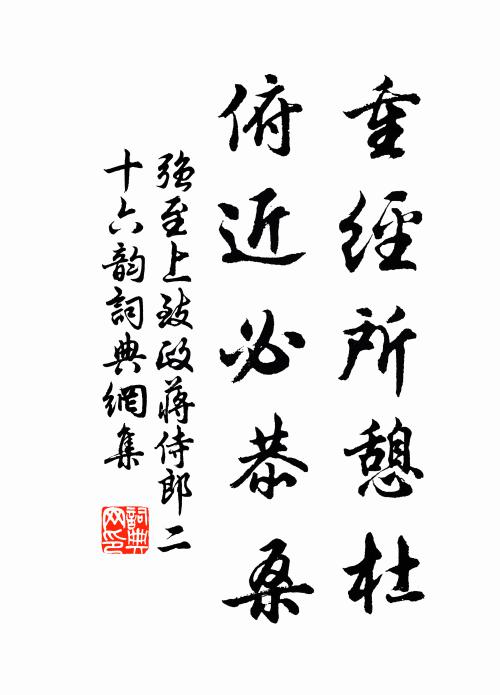 重經所憩杜
俯近必恭桑
強至上致政蔣侍郎二
十六韵詞典網集
詞典
网印